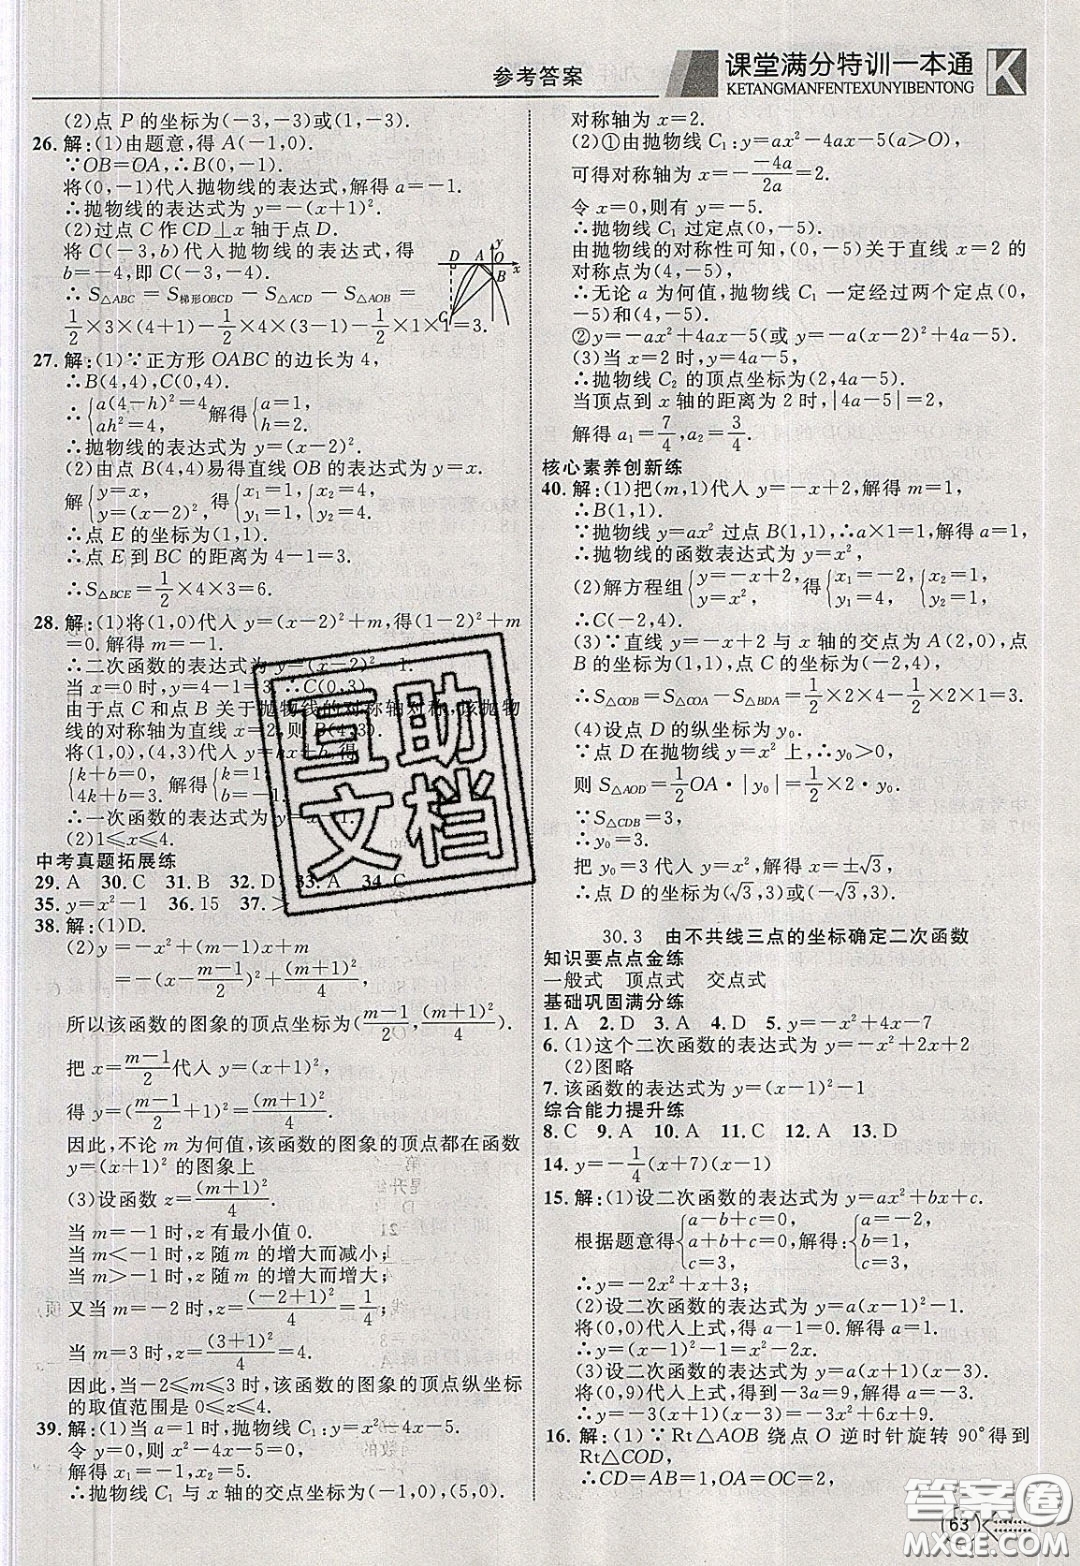 参考答案
课堂满分特训一本通
KETANGMANFENTEXUNYIBENTONG
K
(2)点 P 的坐标为(-3,-3)或(1,-3).
26. 解:(1)由题意,得 A(-1,0).
∵OB=OA,∴B(0,-1).
将(0,-1)代入抛物线的表达式,解得 a=-1.
∴抛物线的表达式为 y=-(x+1)².
(2)过点 C 作 CD⊥x 轴于点 D.
将 C(-3,b)代入抛物线的表达式,得
b=-4,即 C(-3,-4).
∴S△ABC=S梯形OBCD-S△ACD-S△AOB=
1/2×3×(4+1)-1/2×4×(3-1)-1/2×1×1=3.
D A O x y B C
27. 解:(1)∵正方形 OABC 的边长为 4,
∴B(4,4),C(0,4).
∴{a(4-h)²=4 ah²=4, 解得{a=1, h=2.
∴抛物线的表达式为 y=(x-2)².
(2)由点 B(4,4)易得直线 OB 的表达式为 y=x.
解{y=x, y=(x-2)², 得{x₁=1, y₁=1, {x₂=4, y₂=4.
∴点 E 的坐标为(1,1).
∴点 E 到 BC 的距离为 4-1=3.
∴S△BCE=1/2×4×3=6.
28. 解:(1)将(1,0)代入 y=(x-2)²+m,得(1-2)²+m
=0,解得 m=-1.
∴二次函数的表达式为 y=(x-2)²-1.
当 x=0 时,y=4-1=3,∴C(0,3).
由于点 C 和点 B 关于抛物线的对称轴对称,该抛物
线的对称轴为直线 x=2,则 B(4,3).
将(1,0),(4,3)代入 y=kx+b,得
{k+b=0, 4k+b=3. 解得{k=1
∴一次函数的表达式为
(2)1≤x≤4.
中考真题拓展练
29. A 30. C 31. B 32. D 33. A 34. C
35. y=x²-1 36. 15 37. >
38. 解:(1)D.
(2)y=-x²+(m-1)x+m
=-(x-(m-1)/2)²+(m+1)²/4,
所以该函数的图象的顶点坐标为((m-1)/2,(m+1)²/4).
把 x=(m-1)/2代入 y=(x+1)²,
得 y=((m-1)/2+1)²=(m+1)²/4,
因此,不论 m 为何值,该函数的图象的顶点都在函数
y=(x+1)²的图象上
(3)设函数 z=(m+1)²/4.
当 m=-1 时,z 有最小值 0.
当 m<-1 时,z 随 m 的增大而减小;
当 m>-1 时,z 随 m 的增大而增大;
又当 m=-2 时,z=(-2+1)²/4=1/4;
当 m=3 时,z=(3+1)²/4=4.
因此,当-2≤m≤3 时,该函数的图象的顶点纵坐标
的取值范围是 0≤z≤4.
39. 解:(1)当 a=1 时,抛物线 C₁:y=x²-4x-5.
令 y=0,则 x²-4x-5=0,
解得 x₁=-1,x₂=5.
∴抛物线 C₁ 与 x 轴的交点坐标为(-1,0),(5,0).
对称轴为 x=2.
(2)①由抛物线 C₁:y=ax²-4ax-5(a>O),
可得对称轴为 x=-(-4a)/2a=2.
令 x=0,则有 y=-5.
∴抛物线 C₁ 过定点(0,-5).
由抛物线的对称性可知,(0,-5)关于直线 x=2 的
对称点为(4,-5),
∴无论 a 为何值,抛物线 C₁ 一定经过两个定点(0,
-5)和(4,-5).
②y=-ax²+4ax-5(或 y=-a(x-2)²+4a-5)
(3)当 x=2 时,y=4a-5.
∴抛物线 C₂ 的顶点坐标为(2,4a-5).
当顶点到 x 轴的距离为 2 时,|4a-5|=2,
解得 a₁=7/4,a₂=3/4.
核心素养创新练
40. 解:(1)把(m,1)代入 y=-x+2,解得 m=1,
∴B(1,1).
∵抛物线 y=ax² 过点 B(1,1),∴a×1=1,∴a=1.
∴抛物线的函数表达式为 y=x²,
(2)解方程组{y=-x+2, y=x², 得{x=-2, y=4, 或{x=1, y=1,
∴C(-2,4).
(3)∵直线 y=-x+2 与 x 轴的交点为 A(2,0),点
B 的坐标为(1,1),点 C 的坐标为(-2,4),
∴S△COB=S△COA-S△BDA=1/2×2×4-1/2×2×1=3.
(4)设点 D 的纵坐标为 y₀.
∵点 D 在抛物线 y=x² 上,∴y₀>0,
则 S△AOD=1/2OA·|y₀|=1/2×2·y₀.
∵S△CDB=3,
∴y₀=3.
把 y₀=3 代入 y=x²,解得 x=±√3,
∴点 D 的坐标为(√3,3)或(-√3,3).
30.3 由不共线三点的坐标确定二次函数
知识要点点金练
一般式 顶点式 交点式
基础巩固满分练
1. A 2. D 3. A 4. D 5. y=-x²+4x-7
6. (1)这个二次函数的表达式为 y=-x²+2x+2
(2)图略
7. 该函数的表达式为 y=(x-1)²-1
综合能力提升练
8. C 9. A 10. A 11. C 12. A 13. D
14. y=-1/4(x+7)(x-1)
15. 解:(1)设二次函数的表达式为 y=ax²+bx+c.
根据题意得{a-b+c=0 c=3, a+b+c=2, 解得:{a=-2, b=1, c=3.
∴y=-2x²+x+3;
(2)设二次函数的表达式为 y=a(x-1)²-1.
将(0,0)代入上式,得 a-1=0.解得 a=1.
∴y=(x-1)²-1=x²-2x.
(3)设二次函数的表达式为 y=a(x+1)(x-3).
将(1,-12)代入上式,得到-12=-4a,解得 a=3.
∴y=3(x+1)(x-3)=3x²-6x-9.
16. 解:(1)∵Rt△AOB 绕点 O 逆时针旋转 90°得到
Rt△COD,
∴CD=AB=1,OA=OC=2,
互助
文档
答案圈
MXQE.COM
(63)